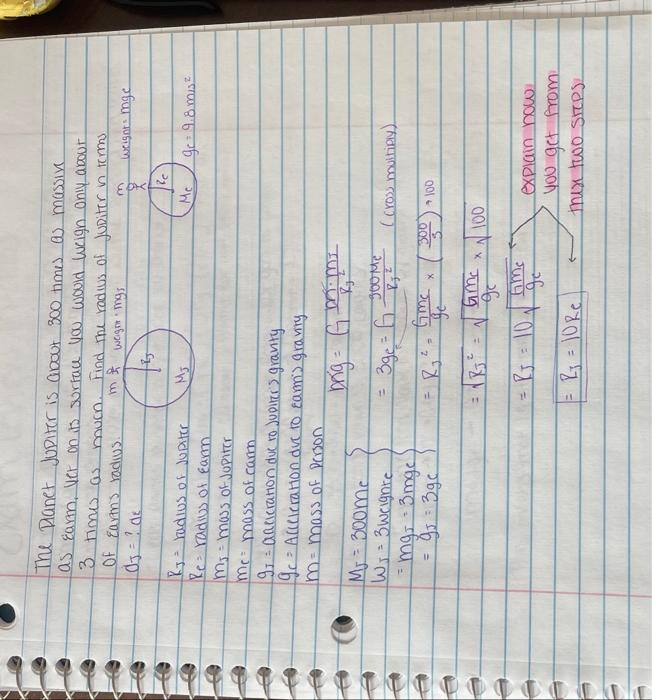 The Planet Jupiter is about 300 times as massive
as Earth, yet on its surface you would weigh only about
3 times as much. Find the radius of Jupiter in terms
of Earth's radius.
m weight = mgJ
m weight = mge
dJ = ? de
RJ
MJ
Re
Me
ge = 9.8 m/s²
RJ = radius of Jupiter
Re = radius of Earth
mJ = mass of Jupiter
me = mass of earth
gJ = acceleration due to Jupiter's gravity
ge = Acceleration due to earth's gravity
m = mass of person
MJ = 300me
WJ = 3weighte
= mgJ = 3mge
= gJ = 3ge
mg = G m·mJ / RJ²
= 3ge = G 300Me / RJ² (cross multiply)
= RJ² = Gme / ge × (300 / 3) → 100
= √RJ² = √Gme / ge × √100
= RJ = 10 √Gme / ge
= RJ = 10Re
explain how
you get from
these two steps